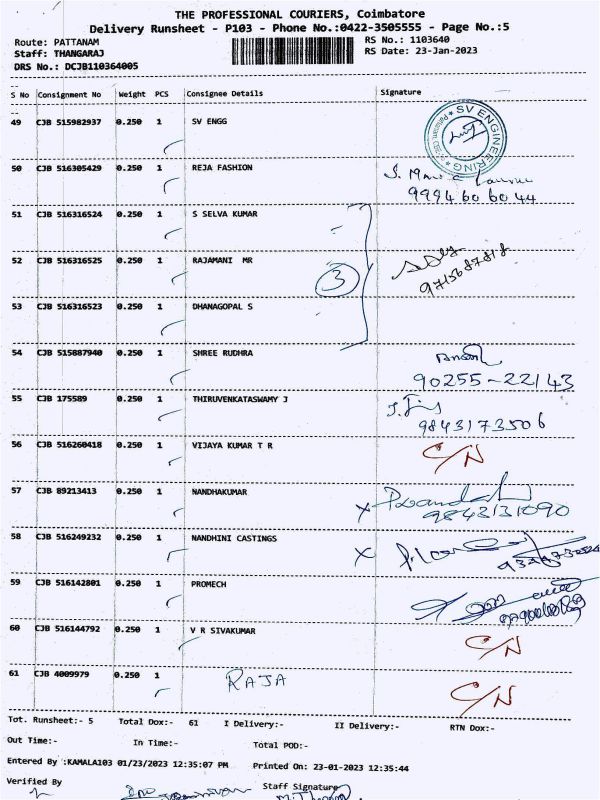 THE PROFESSIONAL COURIERS, Coimbatore
Delivery Runsheet - P103 - Phone No.:0422-3505555 - Page No.:5
Route: PATTANAM
RS No.: 1103640
Staff: THANGARAJ
RS Date: 23-Jan-2023
DRS No.: DCJB110364005
S No Consignment No Weight PCS Consignee Details Signature
49 CJB 515982937 0.250 1 SV ENGG SV ENGINEERING
50 CJB 516305429 0.250 1 REJA FASHION
9994606044
51 CJB 516316524 0.250 1 S SELVA KUMAR
52 CJB 516316525 0.250 1 RAJAMANI MR 3
9715687818
53 CJB 516316523 0.250 1 DHANAGOPAL S
54 CJB 515887940 0.250 1 SHREE RUDHRA
90255-22143
55 CJB 175589 0.250 1 THIRUVENKATASWAMY J
9843173506
56 CJB 516260418 0.250 1 VIJAYA KUMAR T R C/N
57 CJB 89213413 0.250 1 NANDHAKUMAR X
9843131090
58 CJB 516249232 0.250 1 NANDHINI CASTINGS X
59 CJB 516142801 0.250 1 PROMECH
60 CJB 516144792 0.250 1 V R SIVAKUMAR C/N
61 CJB 4009979 0.250 1 RAJA C/N
Tot. Runsheet:- 5 Total Dox:- 61 I Delivery:- II Delivery:- RTN Dox:-
Out Time:- In Time:- Total POD:-
Entered By :KAMALA103 01/23/2023 12:35:07 PM Printed On: 23-01-2023 12:35:44
Verified By Staff Signature